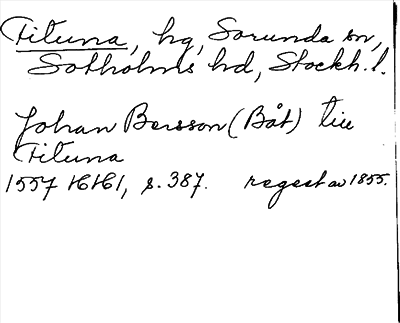 Fituna, hg, Sorunda sn,
Sotholms hd, Stockh. l.
Johan Bersson (Båt) till
Fituna
1557 16/61, s. 387. regest av 1855.